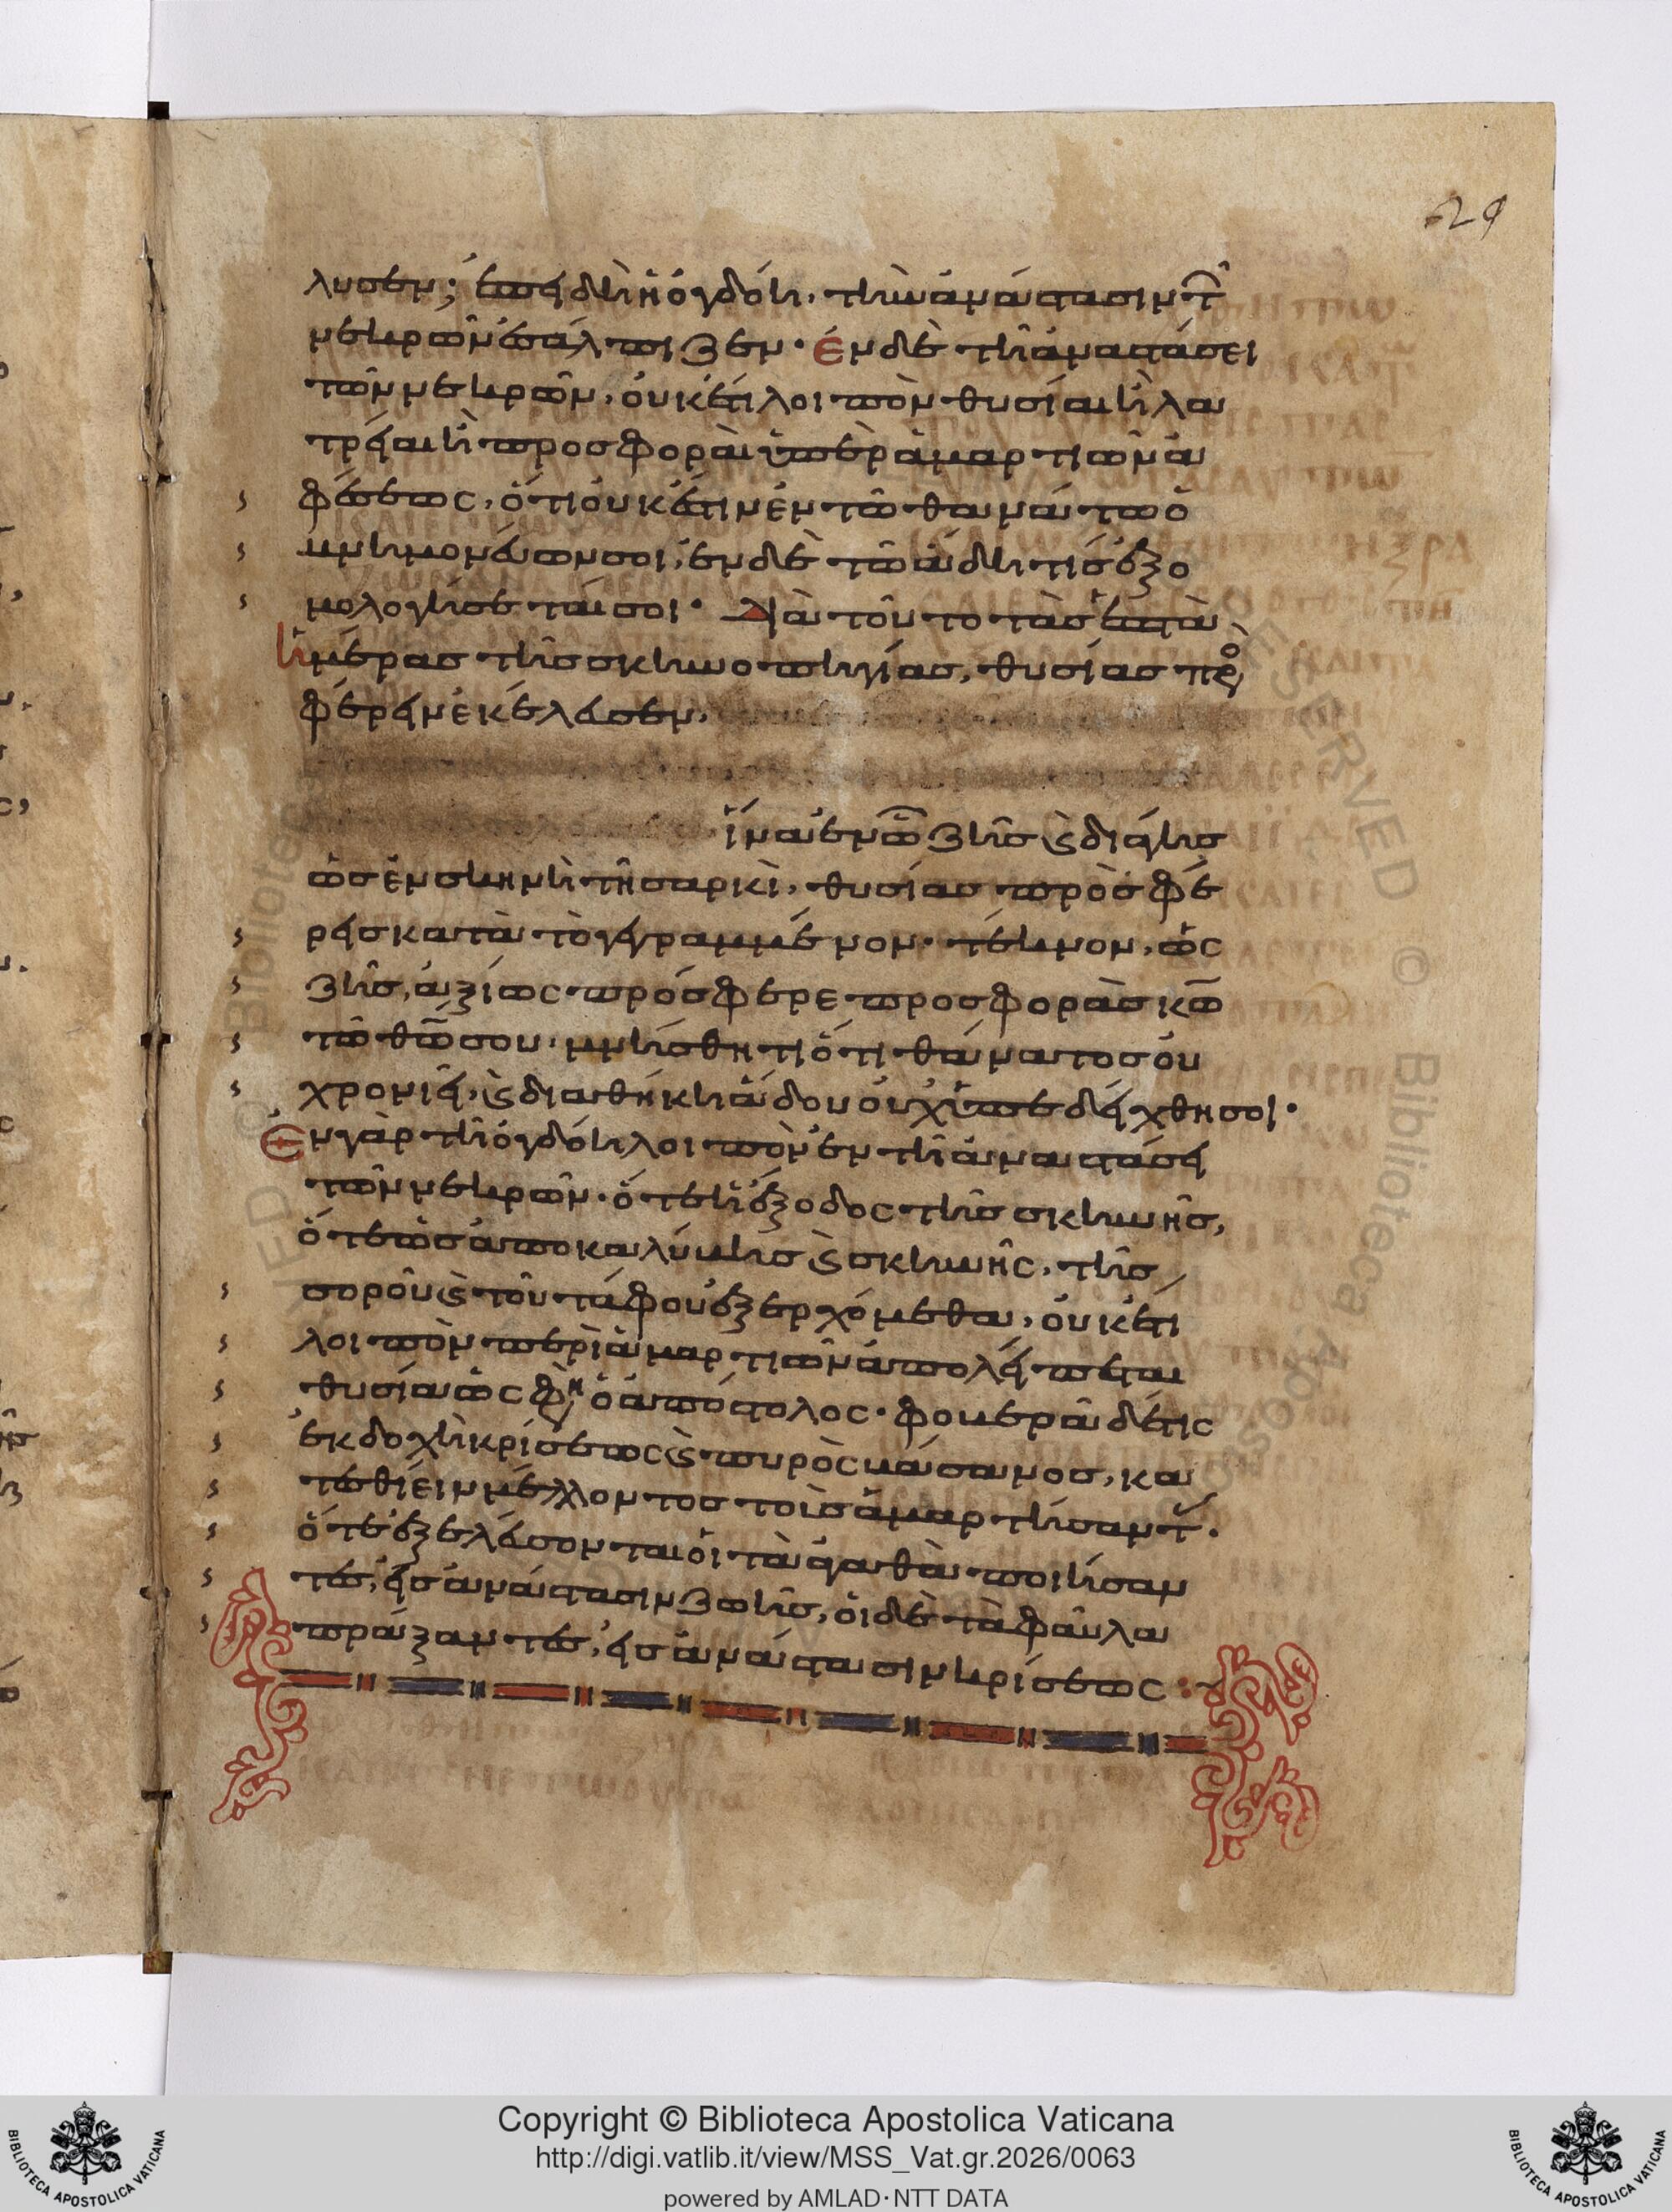 29
λυσεν; ἐπειδὴ ἡ ὀγδόη, τὴν ἀνάστασιν τ
νεκρῶν ἐσάλπιζεν· ἐν δὲ τῆ ἀναστάσει
τῶν νεκρῶν, οὐκέτι λοιπὸν θυσία ἢ λα
τρεία ἢ προσφορὰ ὑπὲρ ἁμαρτιῶν ἀ
φέσεως, ὅτι οὐκ ἔστιν ἐν τῶ θανάτω ὁ
μνημονεύων σου, ἐν δὲ τῶ ἅδη τίς ἐξο
μολογήσεταί σοι· Διὰ τοῦτο τὰς ἑπτὰ
ἡμέρας τῆς σκηνοπηγίας, θυσίας προ
φέρειν ἐκέλευσεν,
ἵνα ἐν ὧ ζῆς ϗ διάγης
ὡς ἐν σκηνῆ τῆ σαρκὶ, θυσίας προσφέ
ρεις κατὰ τὸ γεγραμμένον· τέκνον, ὡς
ζῆς, ἀξίως πρόσφερε προσφορὰς κω
τῶ θω σου, μνήσθητι ὅτι θάνατος οὐ
χρονιεῖ, ϗ διαθήκη ἅδου οὐχ ὑπεδείχθη σοι·
Ἐν γὰρ τῆ ὀγδόη λοιπὸν ἐν τῆ ἀναστάσει
τῶν νεκρῶν· ὅτε ἡ ἔξοδος τῆς σκηνῆς,
ὅτε ὡς ἀπὸ καλύβης ϗ σκηνῆς, τῆς
σοροῦ ϗ τοῦ τάφου ἐξερχόμεθα, οὐκέτι
λοιπὸν περὶ ἁμαρτιῶν ἀπολείπεται
θυσία ὥς φη ὁ ἀπόστολος· φοβερὰ δέ τις
ἐκδοχὴ κρίσεως ϗ πυρὸς βάσανος, κα
τεσθίειν μέλλοντος τοὺς ἁμαρτήσαντ·
ὅτε ἐξελεύσονται οἱ τὰ ἀγαθὰ ποιήσαν
τες, εἰς ἀνάστασιν ζωῆς, οἱ δὲ τὰ φαῦλα
πράξαντες, εἰς ἀνάστασιν κρίσεως :~
Copyright © Biblioteca Apostolica Vaticana
http://digi.vatlib.it/view/MSS_Vat.gr.2026/0063
powered by AMLAD·NTT DATA
BIBLIOTECA APOSTOLICA VATICANA
BIBLIOTECA APOSTOLICA VATICANA